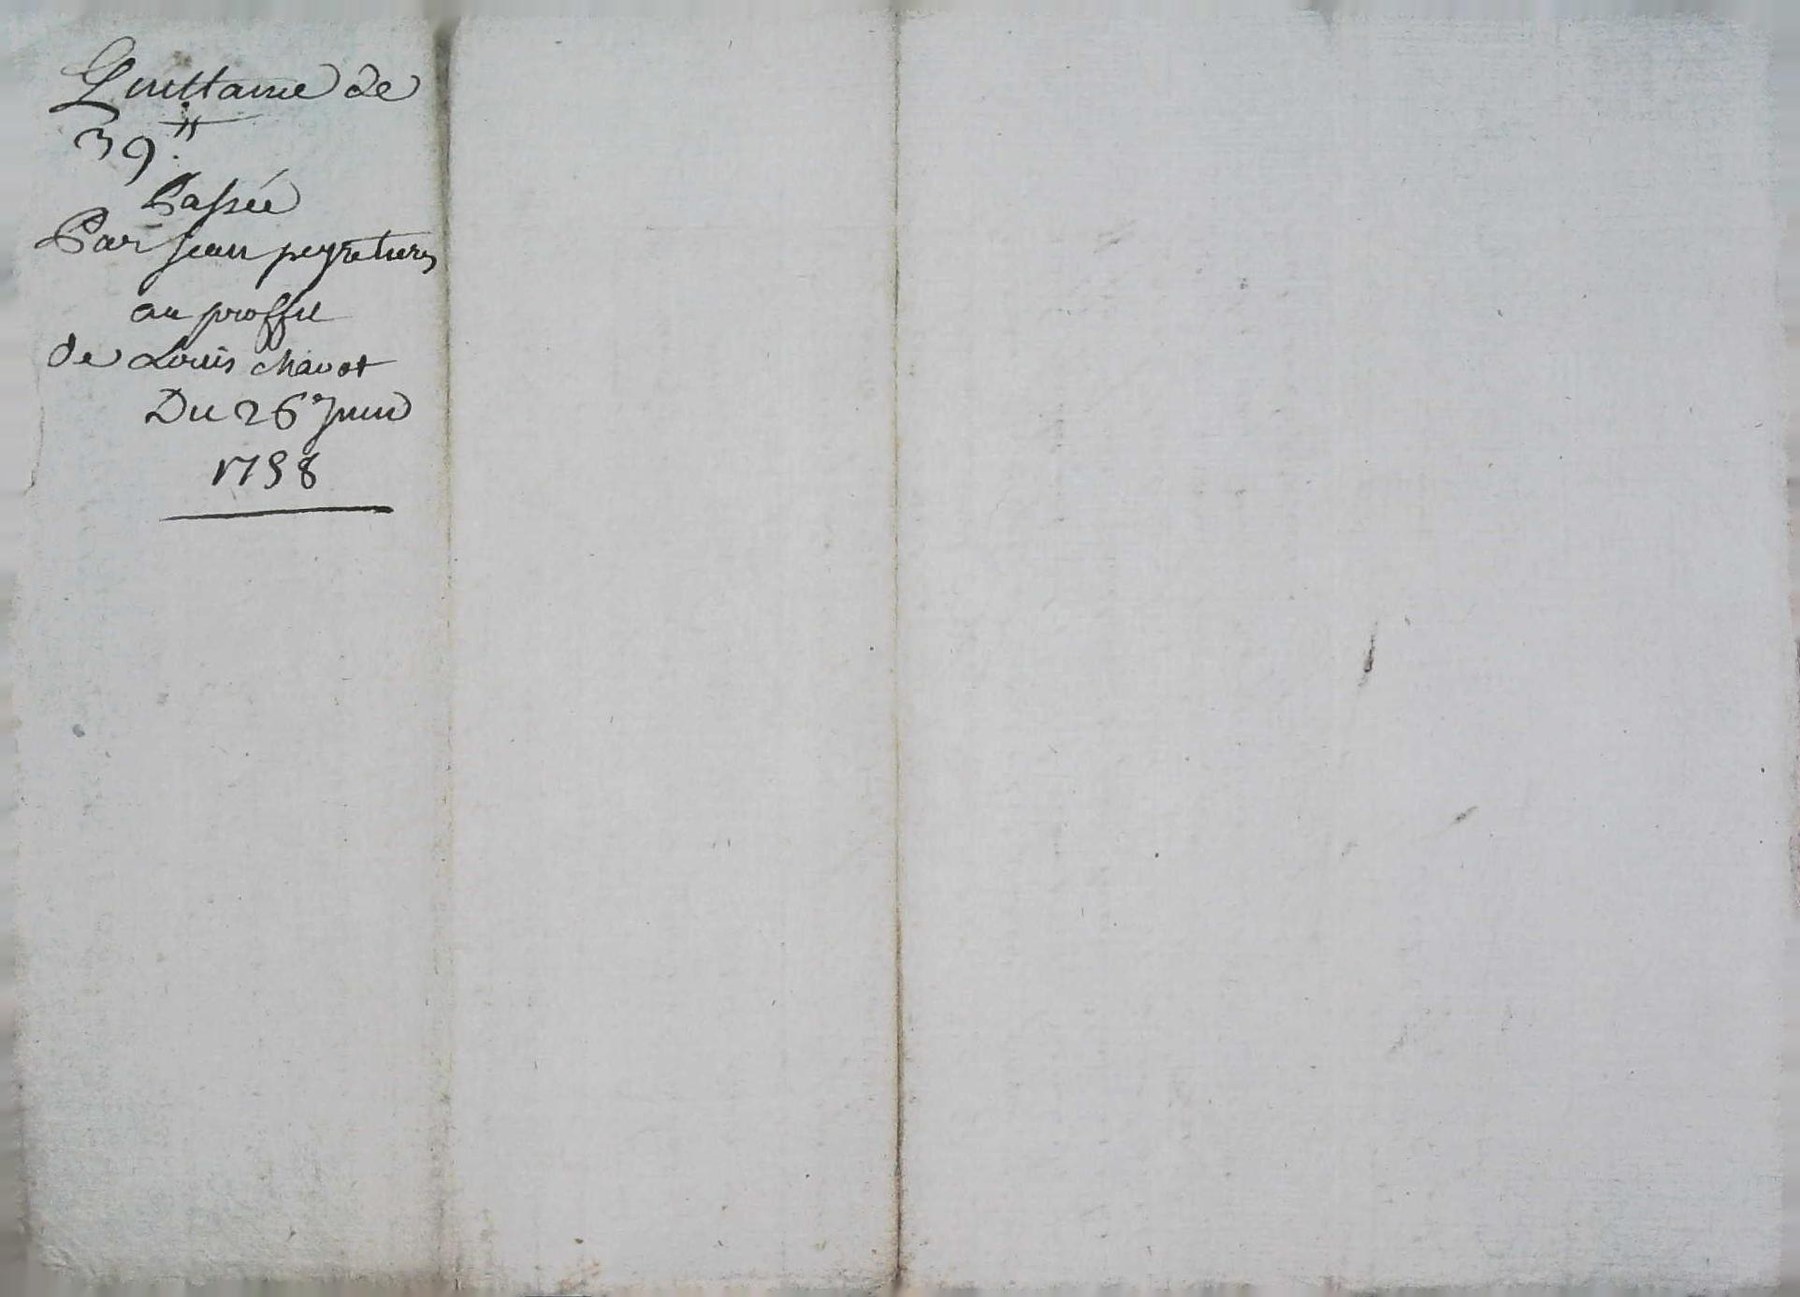 Quittance de
39 ₶
Passée
Par Jean peyretieres
au proffit
de Louis chavot
Du 26e Juin
1758